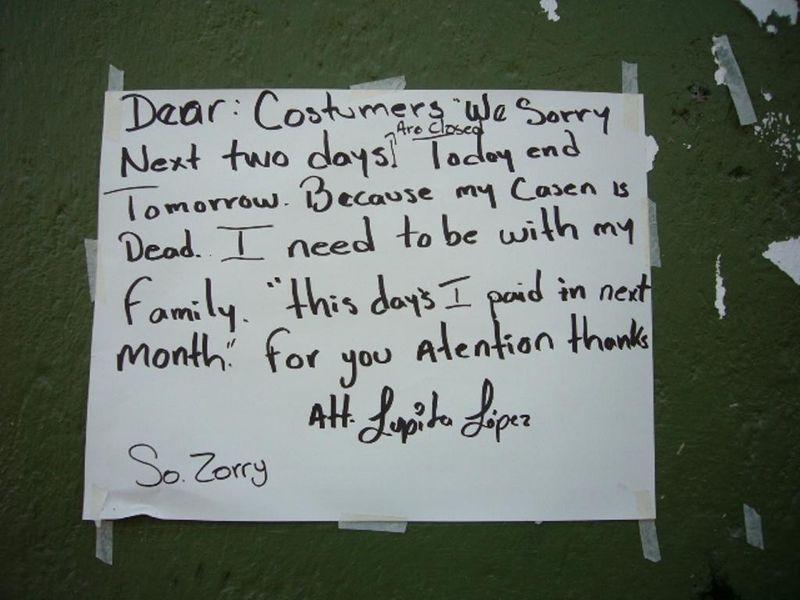 Dear: Costumers "We Sorry
Are Closed
Next two days. Today end
Tomorrow. Because my Casen is
Dead. I need to be with my
family. "this day's I paid in next
month." for you Atention thanks
Att. Lupita López
So. Zorry